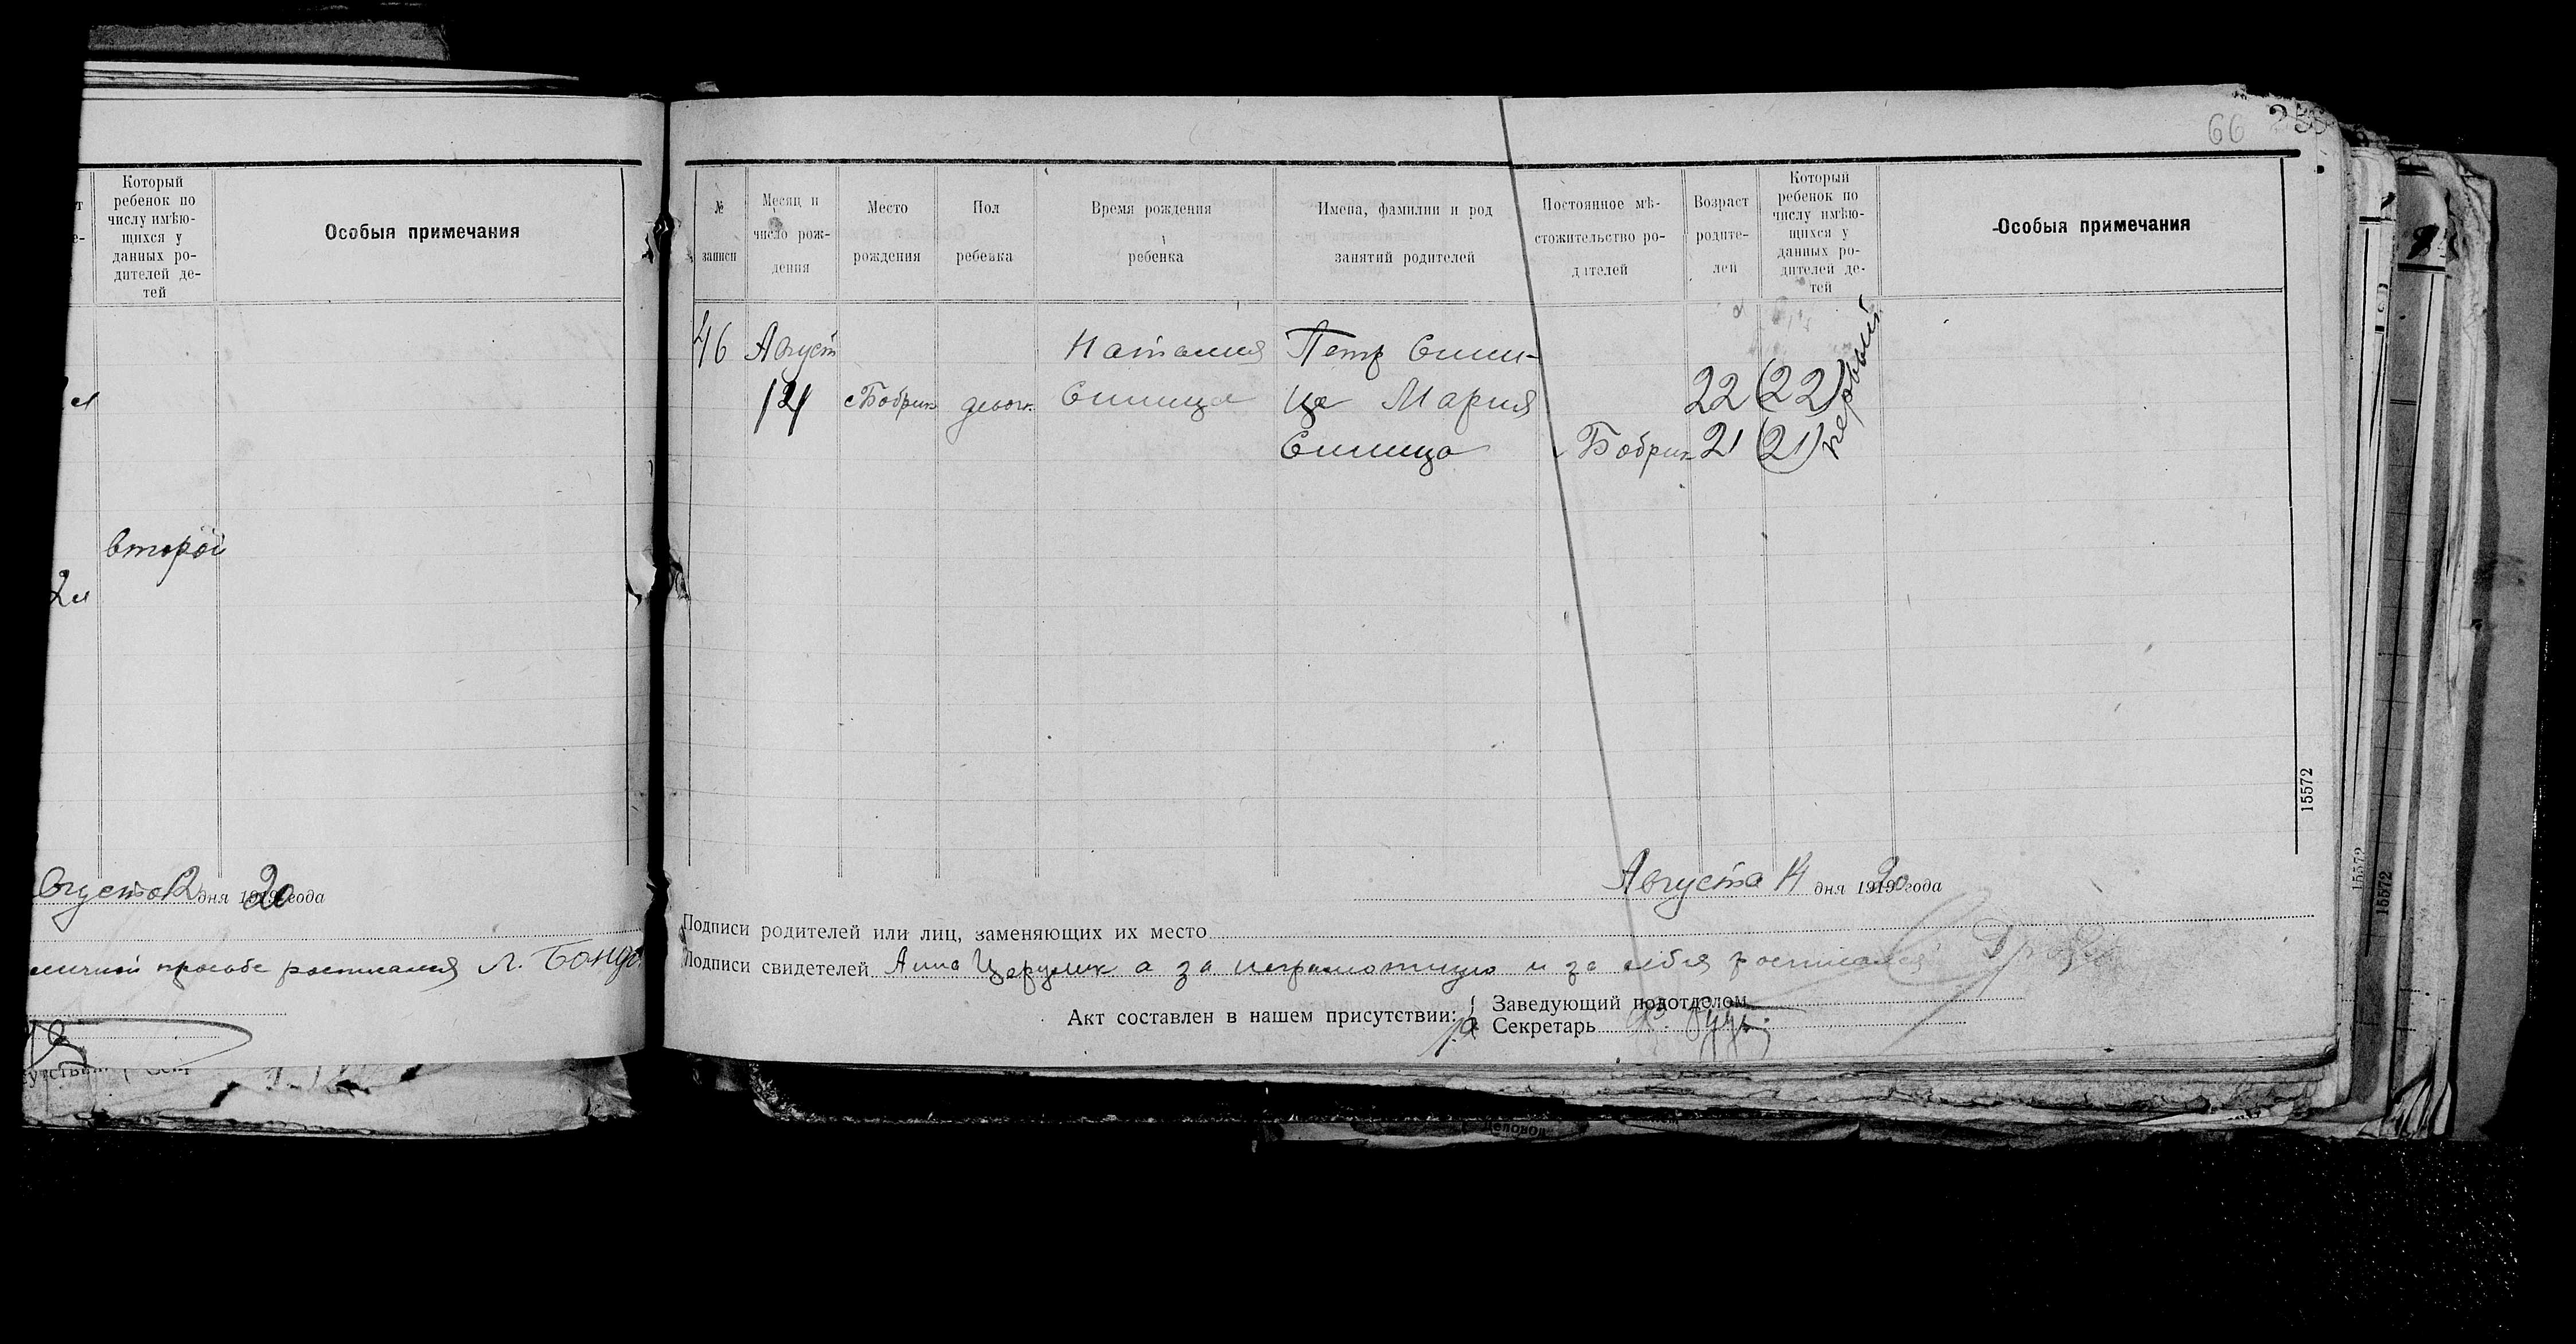 Который
ребенок по
числу имѣю-
щихся у
данных ро-
дителей де-
тей
Особыя примечания
второй
2
дня 1919 20 года
росписался Л. Бонда
66
№
записи
Месяц и
число рож-
дения
Место
рождения
Пол
ребенка
Время рождения
ребенка
Имена, фамилии и род
занятий родителей
Постоянное мѣ-
стожительство ро-
дителей
Возраст
родите-
лей
Который
ребенок по
числу имѣю-
щихся у
данных ро-
дителей де-
тей
Особыя примечания
46 Август Наталия Петр Сини-
с Бобрик девоч. Синица це Мария 22 (22) первый
Синица Бобрик 21 (21)
15572
Августа 14 дня 1919 20 года
Подписи родителей или лиц, заменяющих их место
Подписи свидетелей Анна Церулик а за неграмотную и за себя росписался
Акт составлен в нашем присутствии:
Заведующий подотделом
Секретарь
15572
15572